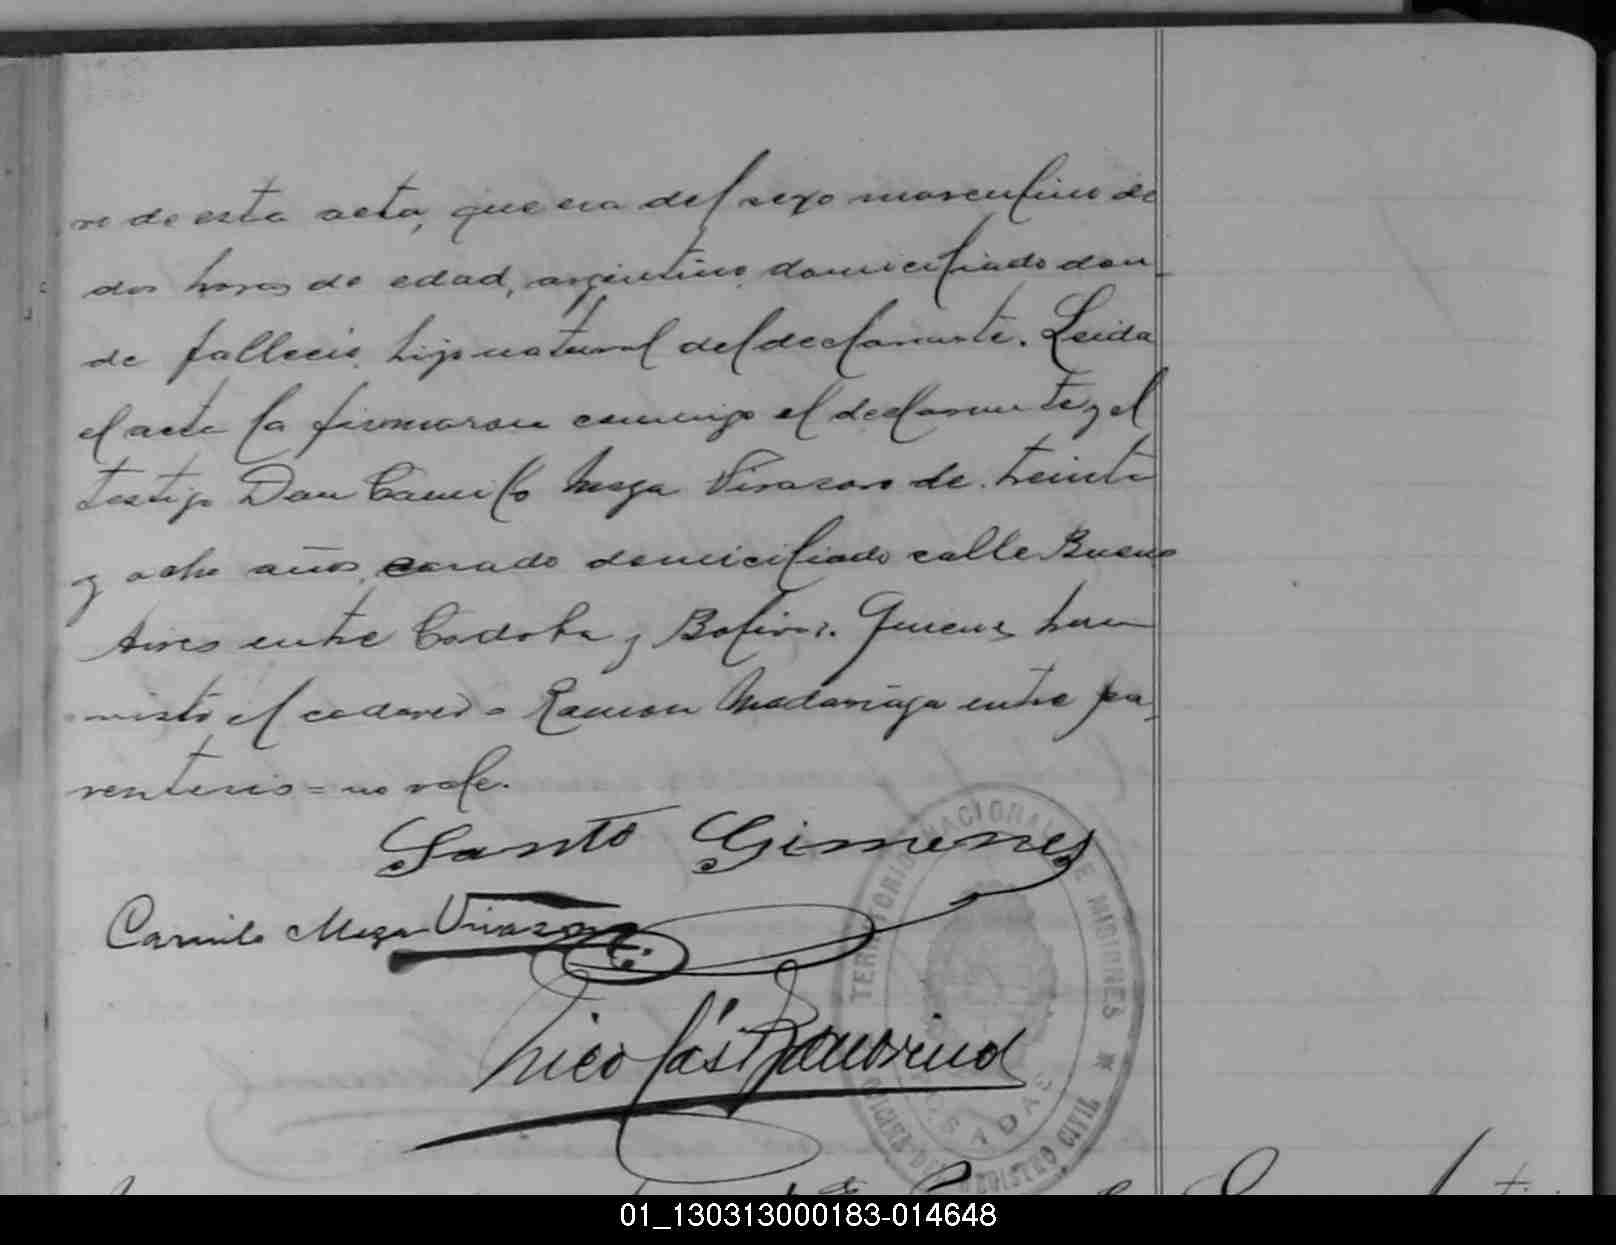 ro de esta acta, que era del sexo masculino de
dos horas de edad, argentino, domiciliado don
de falleció, hijo natural del declarante. Leida
el acta la firmaron conmigo el declarante y el
testigo Don Camilo Meza Virasoro de treinta
y ocho años, casado domiciliado calle Buenos
Aires entre Cordoba y Bolivar. Quienes han
visto el cadaver = Ramon Madariaga entre pa
rentesis = no vale.
Santo Gimenes
Camilo Meza Virasoro
Nicolás
TERRITORIO NACIONAL DE MISIONES
POSADAS
OFICINA DEL REGISTRO CIVIL
01_130313000183-014648